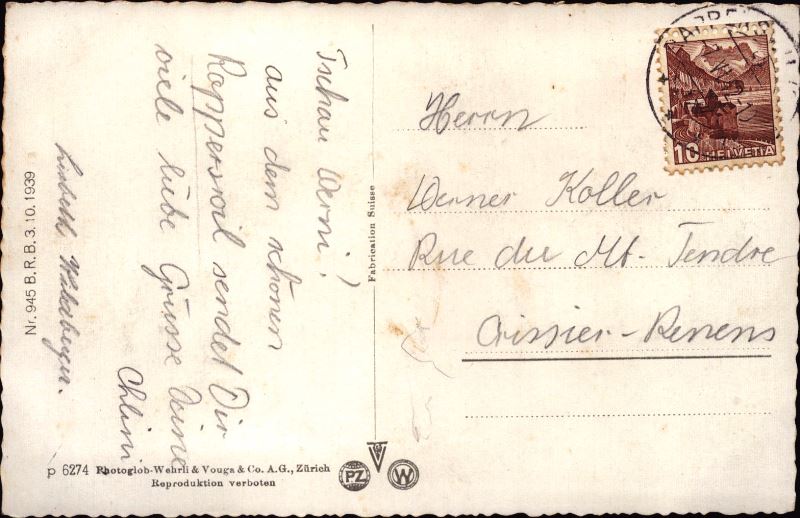 Tschau Werni!
aus dem schönen
Rapperswil sendet Dir
viele liebe Grüsse Deine
Chlini
Lisbeth
Herrn
Werner Koller
Rue du Mt. Tendre
Crissier-Renens
10 HELVETIA
Nr. 945 B.R.B. 3.10.1939
Fabrication Suisse
p 6274 Photoglob-Wehrli & Vouga & Co. A.G., Zürich
Reproduktion verboten
PZ
W